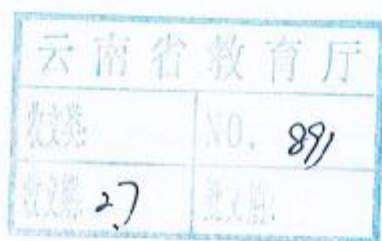 云南省教育厅
收文类: NO. 891
收文号: 27